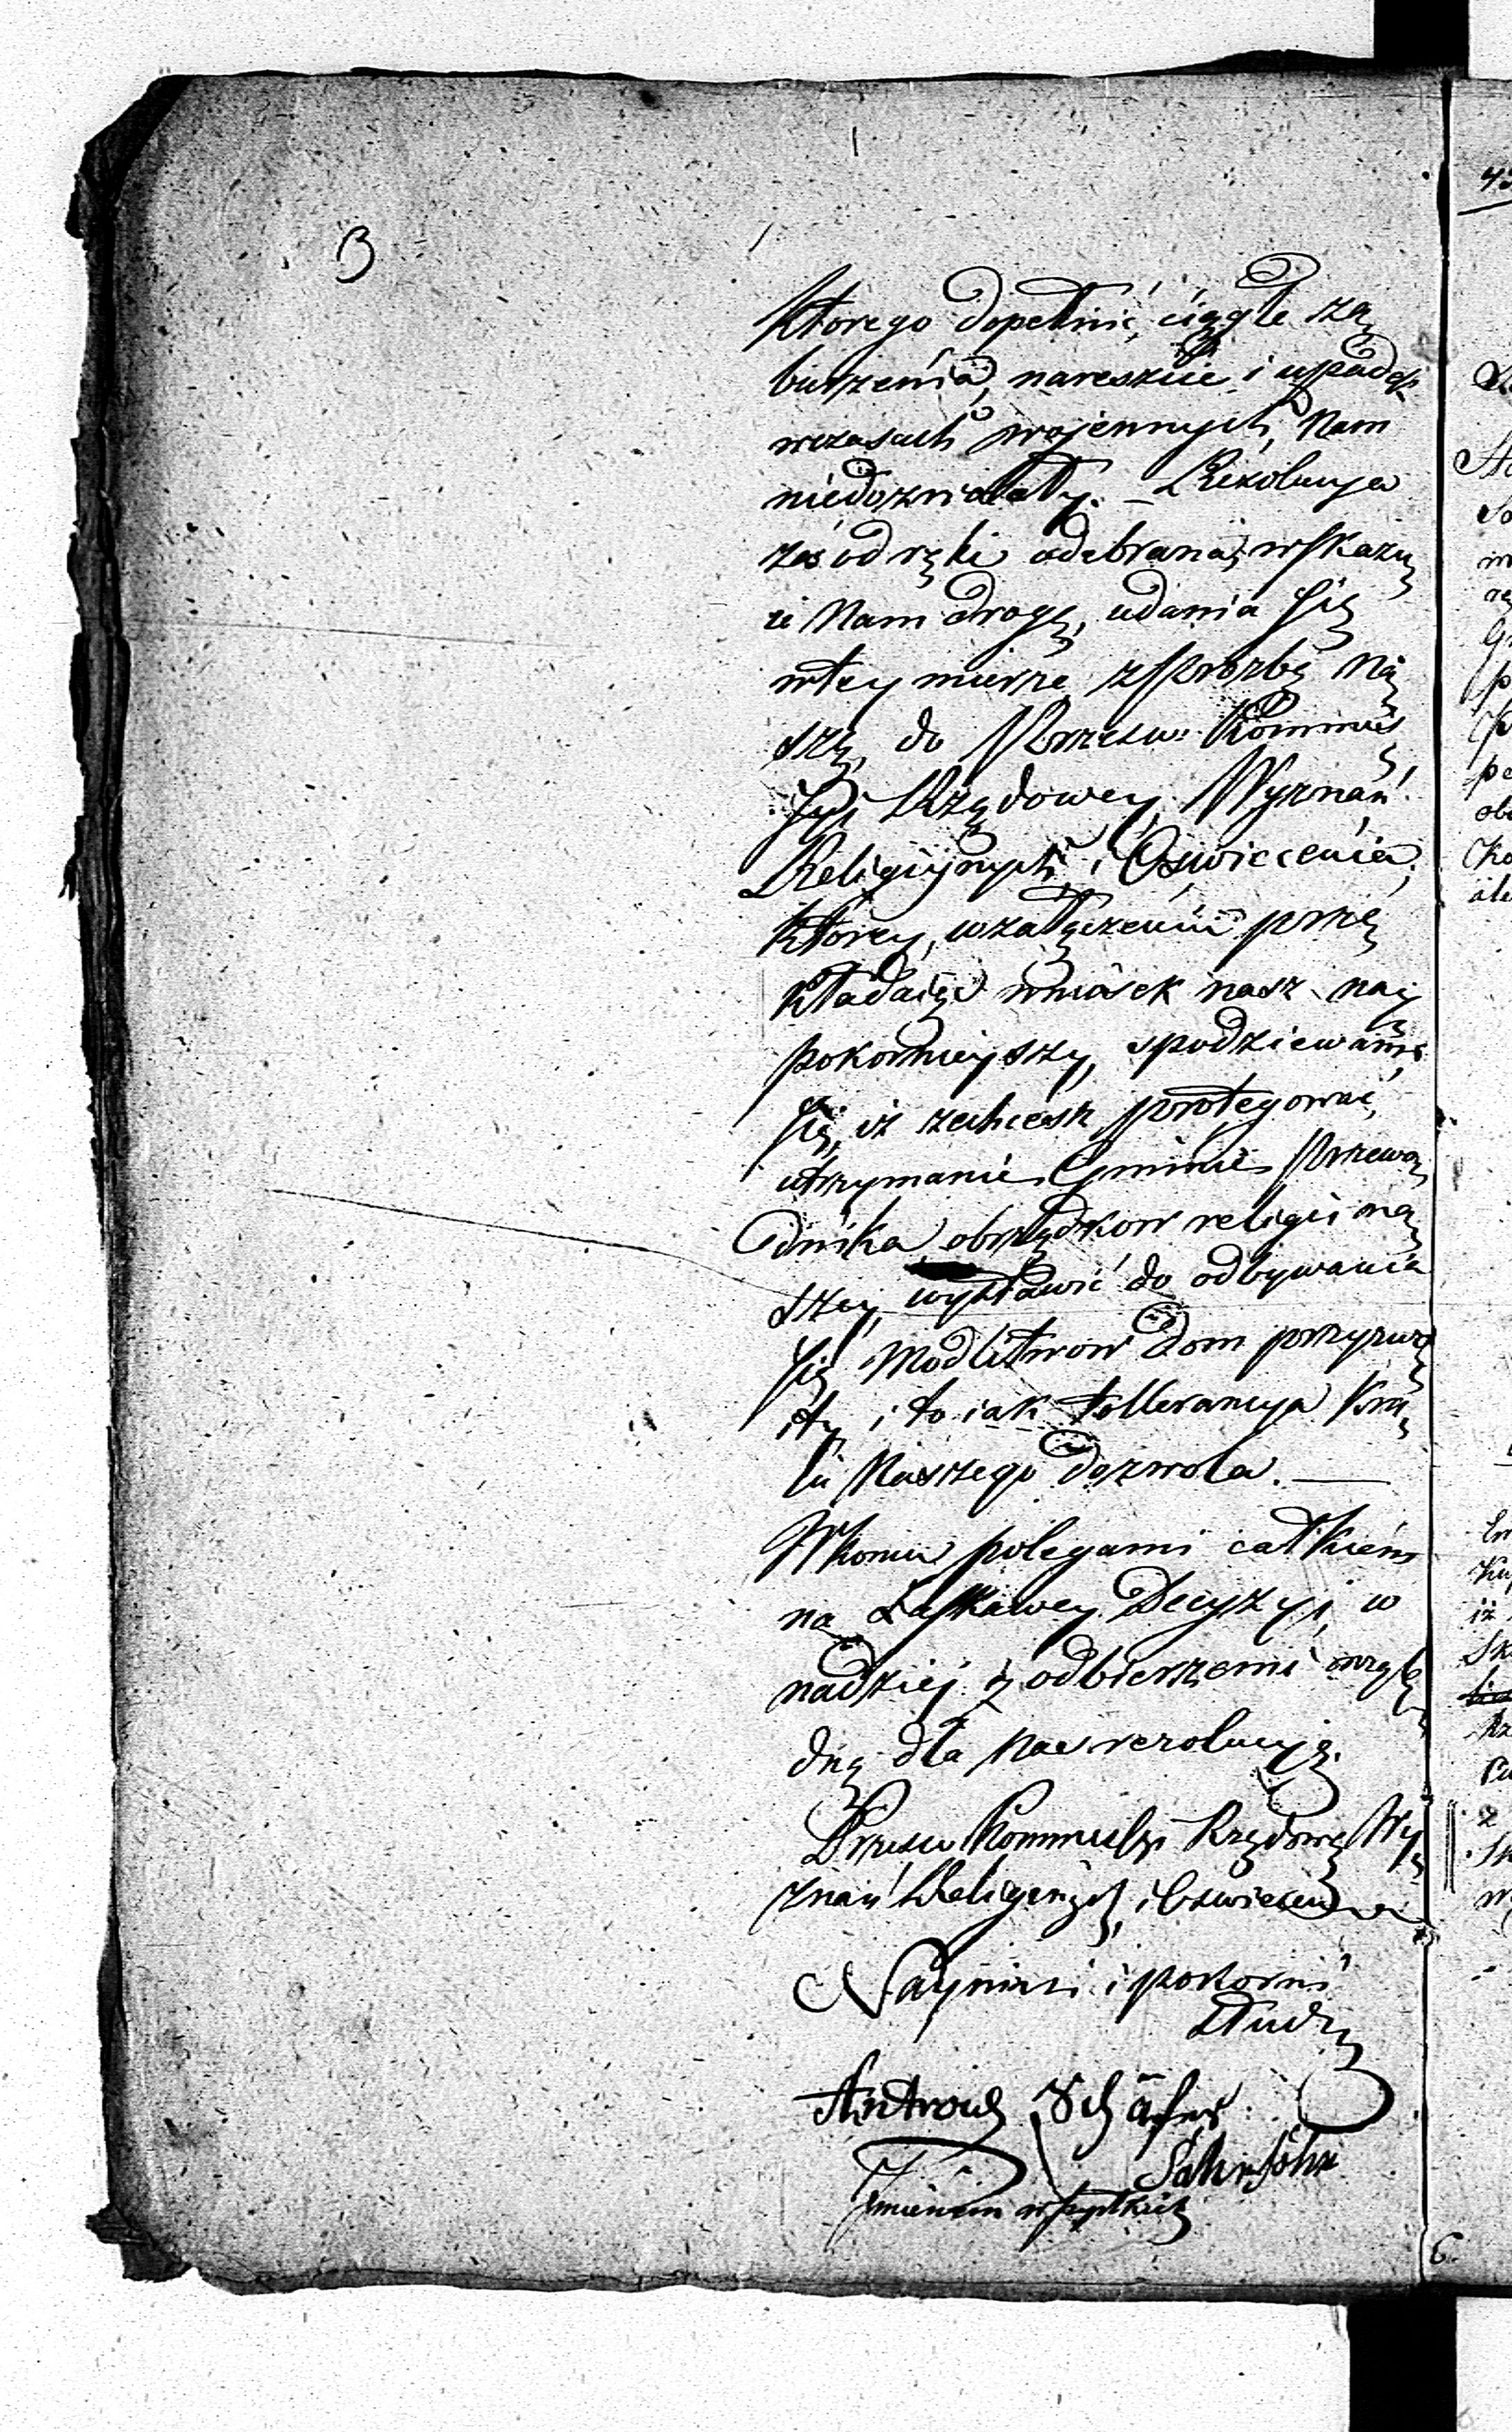 3
którego dopełnić, ciągłe za
burzenia, nareszcie i upadek
wczasach wojennych, Nam
niedozwalały. – Rezolucya
zaś od ręki odebrana, wskazu
ie Nam drogę, udania się
wtey mierze zprozbą na
szą, do Przesw. Kommis
syi Rządowey Wyznań
Religiynych i Oswiecenia,
którey, wzałączeniu prze
kładaiąc wniosek nasz nay
pokornieyszy, spodziewamy
się, iż zechcesz protegować
utrzymanie Gminie Przewo
dnika obrządkow religii na
szey, wystawić do odbywania
się Modlitwow Dom przyzwo
ity, i to iak tollerancya Kra
iu Naszego dozwola. —
Wkoncu polegami całkiem
na Łaskawey Decyzyi, w
nadziej iż odbierzemi wzglę
dną dla nas rezolucyę.
Przesw Kommissyi Rządowey Wy
znań Religijnych, i Oswiecenia
Nayniżsi i pokorni
Słudzy
Andreas Schäfer
Imieniem wszystkich
6